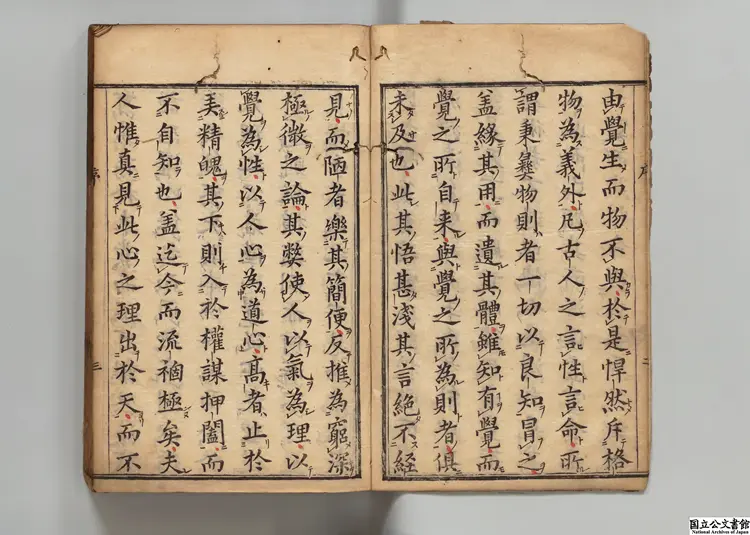 由覺生而物不與於是悍然斥格
物為義外凡古人之言性言命所
謂秉彝物則者一切以良知冒之
盖緣其用而遺其體雖知有覺而
覺之所自来與覺之所為則者俱
未及也此其悟甚淺其言絶不経
見而陋者樂其簡便反推為窮深
極微之論其弊使人以氣為理以
覺為性以人心為道心髙者止於
美精魄其下則入於權謀押闔而
不自知也盖迄今而流禍極矣夫
人惟真見此心之理出於天而不
序
二
序
三
国立公文書館
National Archives of Japan